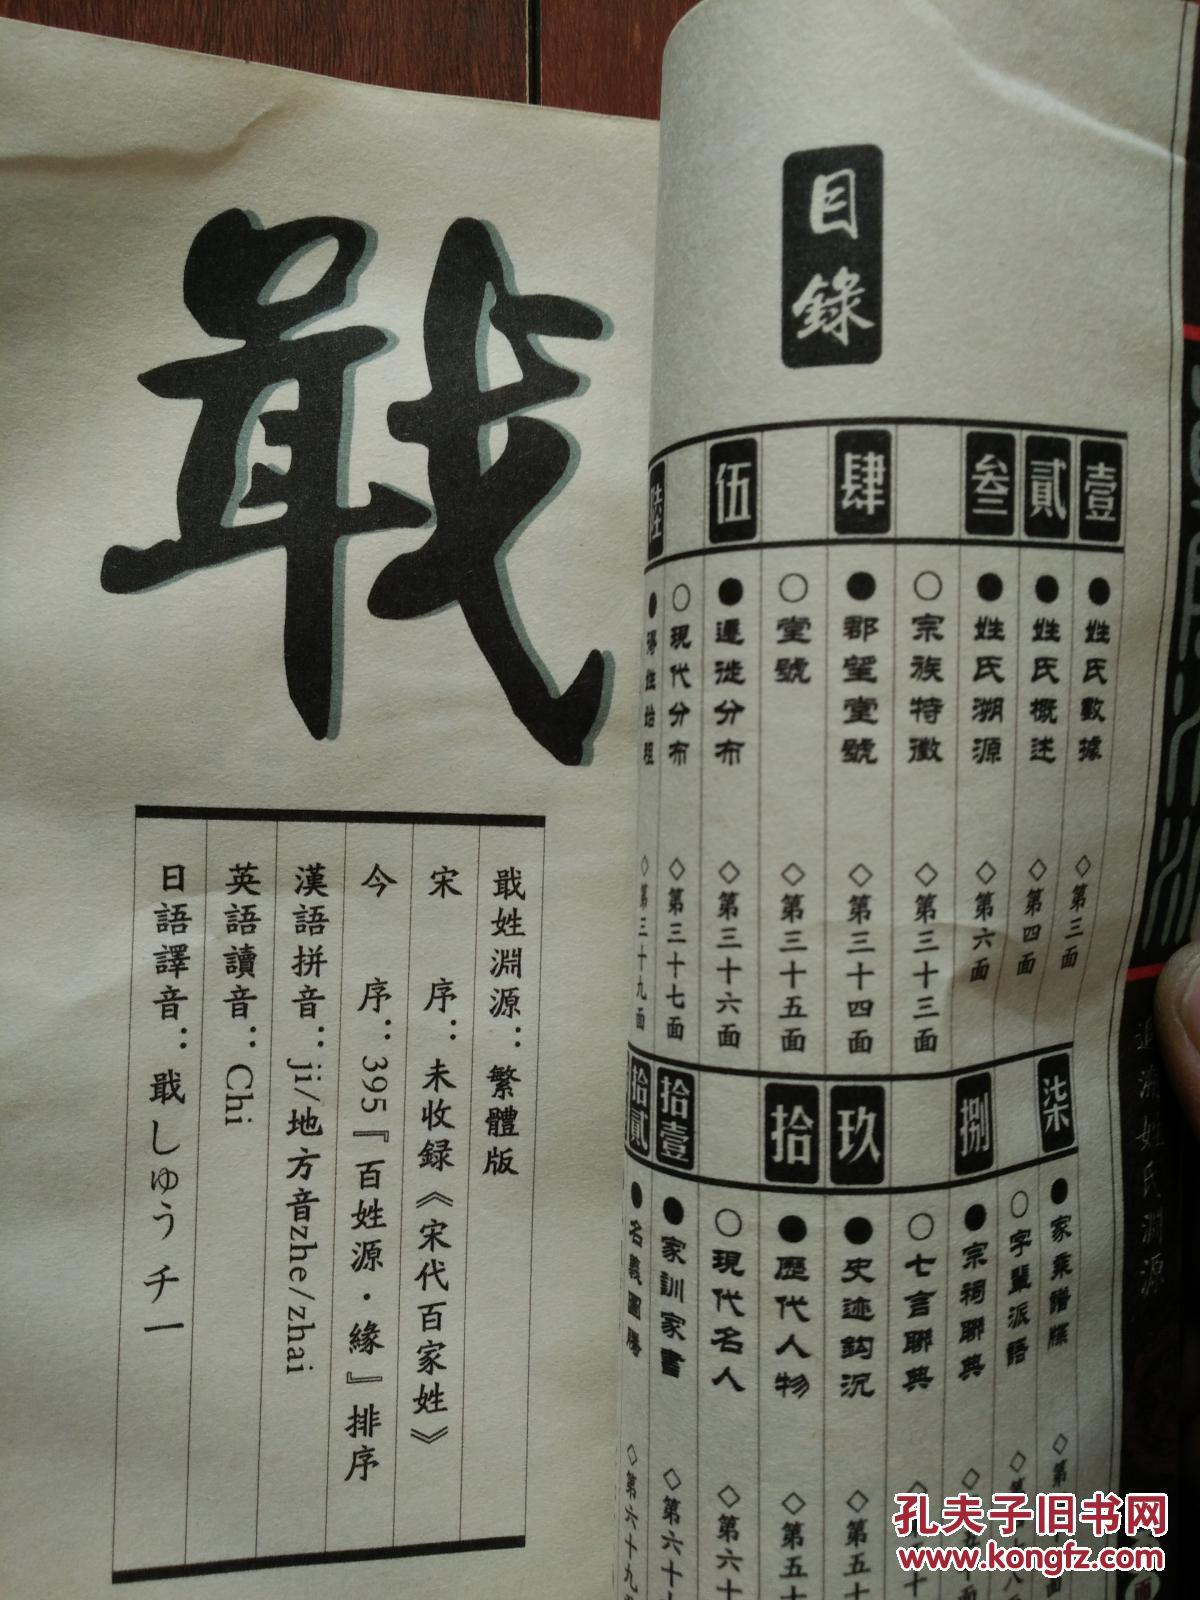 戢
戢姓淵源：繁體版
宋 序：未收録《宋代百家姓》
今 序：395『百姓源·緣』排序
漢語拼音：ji/地方音zhe/zhai
英語讀音：Chi
日語譯音：戢しゆう チ一
目錄
壹
●姓氏數據 ◇第三面
貳
●姓氏概述 ◇第四面
叁
●姓氏溯源 ◇第六面
○宗族特徵 ◇第三十三面
肆
●郡望堂號 ◇第三十四面
○堂號 ◇第三十五面
伍
●遷徙分布 ◇第三十六面
○現代分布 ◇第三十七面
陸
●得姓始祖 ◇第三十九面
柒
●家乘譜牒 ◇第
○字輩派語 ◇第
捌
●宗祠聯典 ◇
○七言聯典 ◇
玖
●史迹鈎沉 ◇第五十
拾
●歷代人物 ◇第五十
○現代名人 ◇第六十
拾壹
●家訓家書 ◇第六十
拾貳
●名義圖騰 ◇第六十九
追溯姓氏淵源
孔夫子旧书网
www.kongfz.com